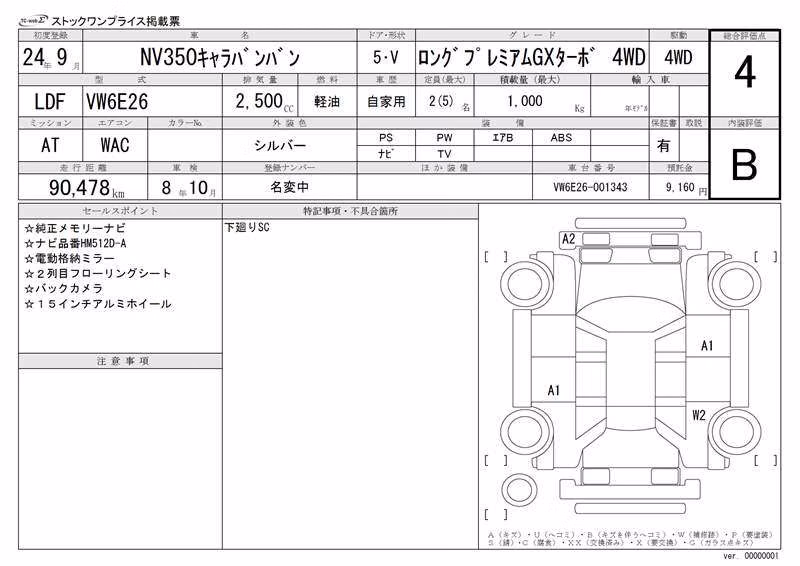 TC-webΣ ストックワンプライス掲載票
初度登録 車名 ドア・形状 グレード 駆動 総合評価点
24年 9月 NV350キャラバンバン 5・V ロングプレミアムGXターボ 4WD 4WD 4
型式 排気量 燃料 車歴 定員(最大) 積載量(最大) 輸入車
LDF VW6E26 2,500CC 軽油 自家用 2(5)名 1,000Kg 年モデル
ミッション エアコン カラーNo. 外装色 装備 保証書 取説 内装評価
AT WAC シルバー PS PW エアB ABS 有 B
ナビ TV
走行距離 車検 登録ナンバー ほか装備 車台番号 預託金
90,478km 8年10月 名変中 VW6E26-001343 9,160円
セールスポイント 特記事項・不具合箇所
☆純正メモリーナビ 下廻りSC
☆ナビ品番HM512D-A
☆電動格納ミラー
☆2列目フローリングシート
☆バックカメラ
☆15インチアルミホイール
注意事項
A2
[ ] [ ]
A1
A1
W2
[ ] [ ]
[ ]
A(キズ)・U(ヘコミ)・B(キズを伴うヘコミ)・W(補修跡)・P(要塗装)
S(錆)・C(腐食)・XX(交換済み)・X(要交換)・G(ガラス点キズ)
ver. 00000001